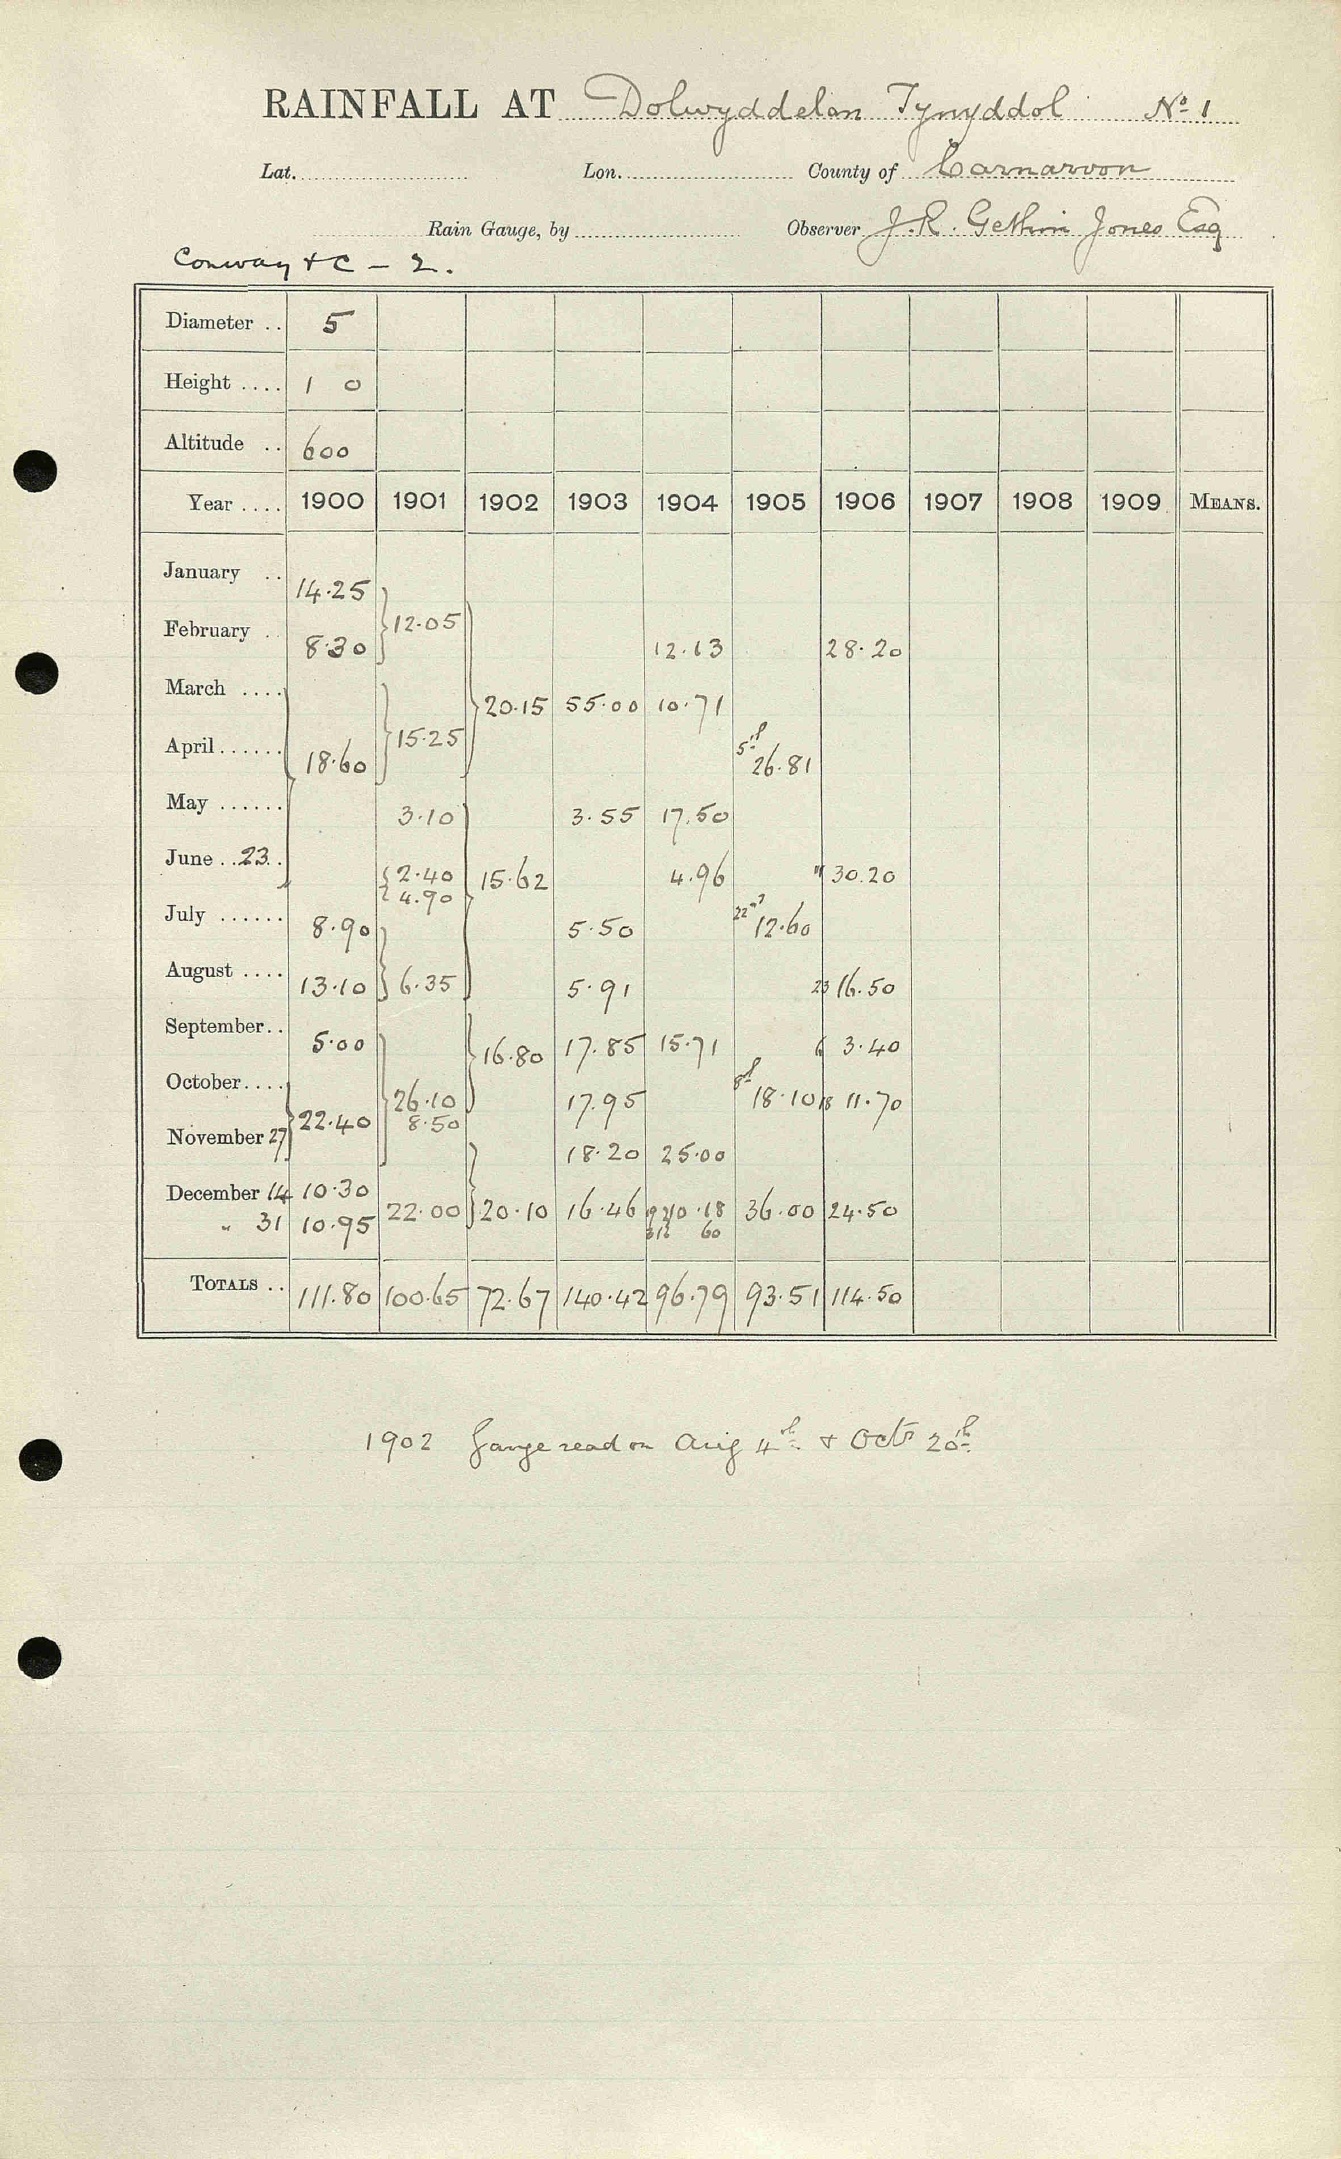 RAINFALL AT Dolwyddelan Tynyddol No 1
Lat. Lon. County of Carnarvon
Rain Gauge, by Observer J. R. Gethin Jones Esq
Conway & C - 2.
Diameter .. 5
Height .... 1 0
Altitude .. 600
Year .... 1900 1901 1902 1903 1904 1905 1906 1907 1908 1909 MEANS.
January .. 14.25
12.05
February .. 8.30 12.13 28.20
March .... 20.15 55.00 10.71
15.25
April ...... 18.60 5th 26.81
May ...... 3.10 3.55 17.50
June .. 23 .. 2.40 15.62 4.96 30.20
4.90
July ...... 8.90 5.50 22nd 12.60
August .... 13.10 6.35 5.91 23 16.50
September .. 5.00 16.80 17.85 15.71 6 3.40
October .... 26.10 17.95 8th 18.10 18 11.70
22.40 8.50
November 27 18.20 25.00
December 14 10.30 22.00 20.10 16.46 10.18 36.00 24.50
" 31 10.95 60
TOTALS .. 111.80 100.65 72.67 140.42 96.79 93.51 114.50
1902 Gauge read on Aug 4th & Oct 20th